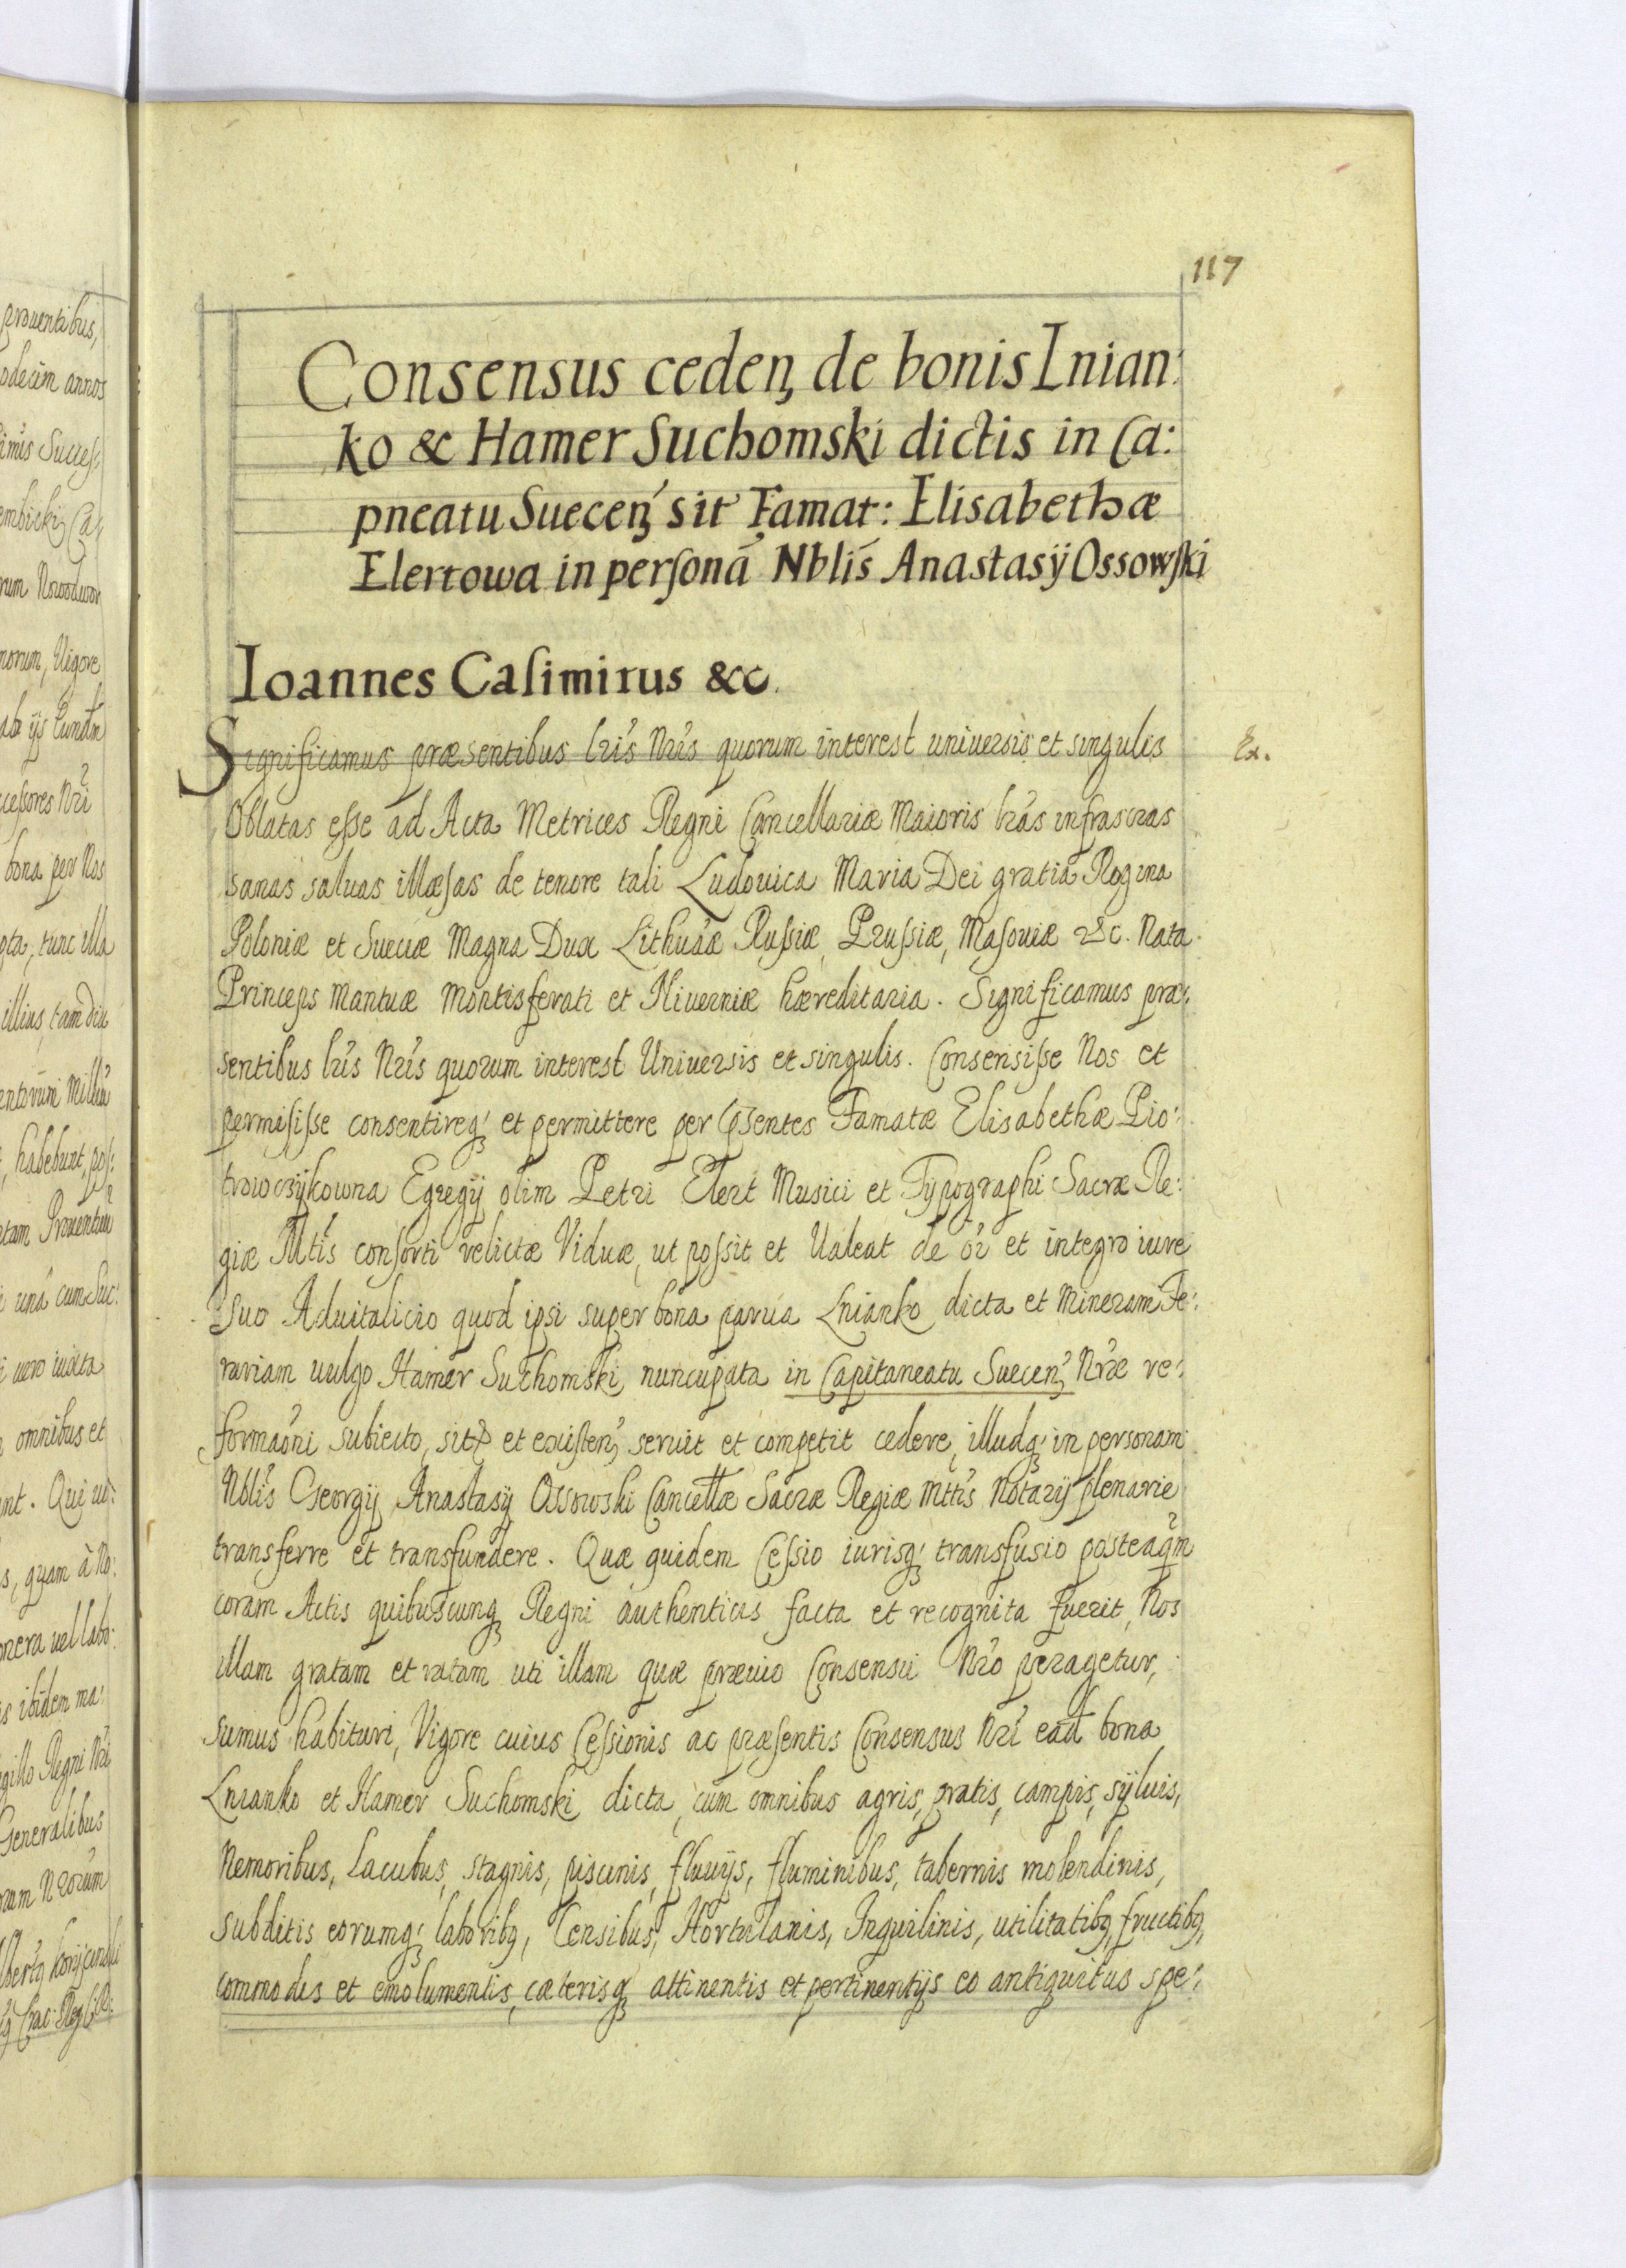 117
Consensus ceden, de bonis Lnian:
ko & Hamer Suchomski dictis in Ca:
pneatu Suecen, sit Famat: Elisabethæ
Elertowa in personā Nblis Anastasÿ Ossowski
Ioannes Casimirus &c.
Significamus præsentibus lris Nris quorum interest universis et singulis
Ex.
Oblatas esse ad Acta Metrices Regni Cancellariæ Maioris lras infrascras
sanas saluas illæsas de tenore tali Ludouica Maria Dei gratia Regina
Poloniæ et Sueciæ Magna Dux Lithuaæ Russiæ, Prussiæ, Masouiæ &c. Nata
Princeps Mantuæ Montisferati et Niuerniæ hæreditaria. Significamus præ:
sentibus lris Nris quorum interest Uniuersis et singulis. Consensisse Nos et
permisisse consentireq; et permittere per p̄sentes Famatæ Elisabethæ Pio:
trowczÿkowna Egregÿ olim Petri Elert Musici et Tÿpographi Sacræ Re:
giæ Mtis consorti relictæ Viduæ, ut possit et Ualeat de oi et integro iure
suo Aduitalicio quod ipsi super bona parua Lnianko dicta et Mineram Fe:
rariam uulgo Hamer Suchomski nuncupata in Capitaneatu Suecen, Nræ re:
formaoni subiecto, sit, et existen, seruit et competit cedere, illudq; in personam
Nblis Georgÿ Anastasÿ Ossowski Cancellæ Sacræ Regiæ Mttis Notarÿ plenarie
transferre et transfundere. Quæ quidem Cessio iurisq; transfusio posteaqm
coram Actis quibuscunq; Regni authenticis facta et recognita fuerit, Nos
illam gratam et ratam uti illam quæ præuio Consensu Nro peragetur,
sumus habituri, Vigore cuius Cessionis ac præsentis Consensus Nri ead bona
Lnianko et Hamer Suchomski dicta, cum omnibus agris, pratis, campis, sÿluis,
Nemoribus, Lacubus, stagnis, piscinis, fluuÿs, fluminibus, tabernis molendinis,
subditis eorumq; laboribq, Censibus, Hortulanis, Inquilinis, utilitatibq, fructibq,
commodis et emolumentis, cæterisq; attinentis et pertinentÿs eo antiquitus spe: